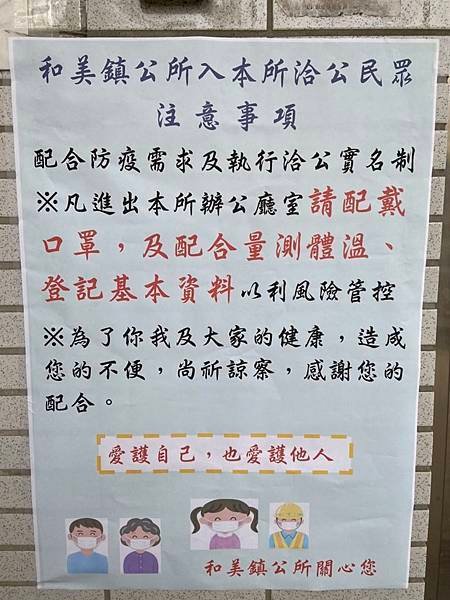 和美鎮公所入本所洽公民眾
注意事項
配合防疫需求及執行洽公實名制
※凡進出本所辦公廳室請配戴
口罩，及配合量測體溫、
登記基本資料以利風險管控
※為了你我及大家的健康，造成
您的不便，尚祈諒察，感謝您的
配合。
愛護自己，也愛護他人
和美鎮公所關心您